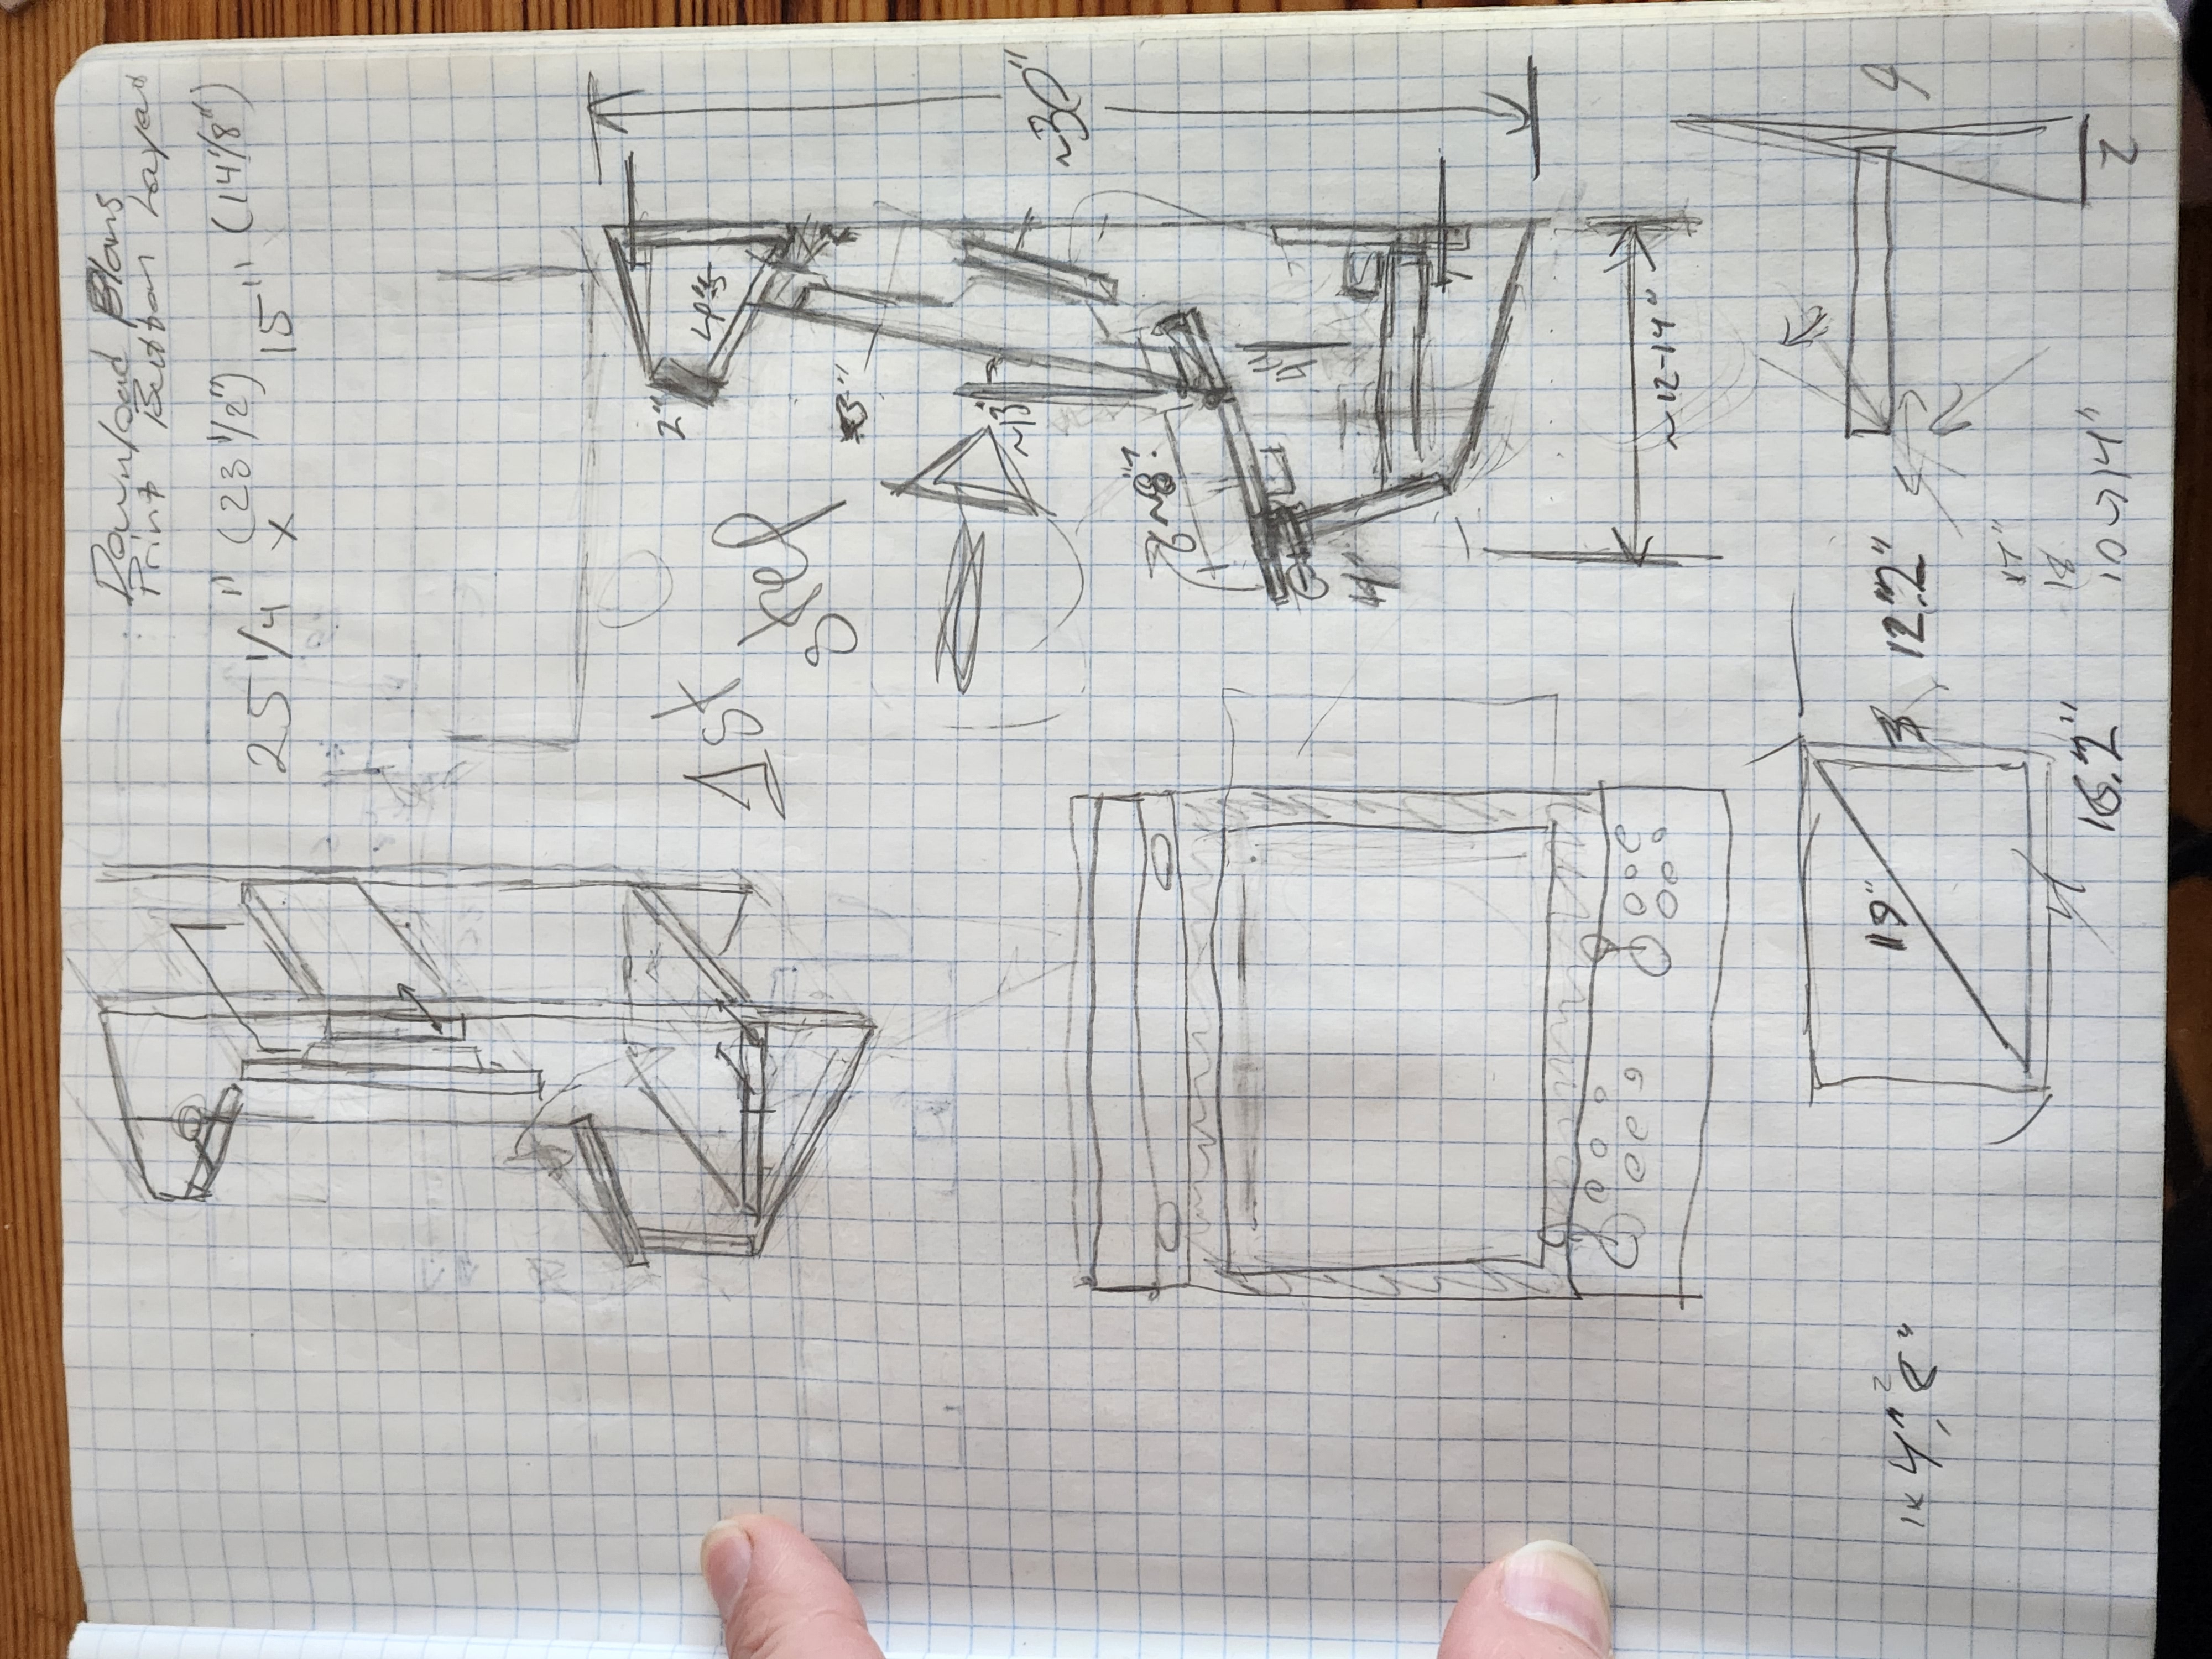 Download Plans
Print Button Layout
25 1/4" (23 1/2") x 15" (14 1/8")
1st
step
2"
4"
3"
~13"
~30"
~8"
4"
4"
~12-14"
19"
3
12.2"
1x4", 2"
4
16.2"
17"
18
10→14"
9
2